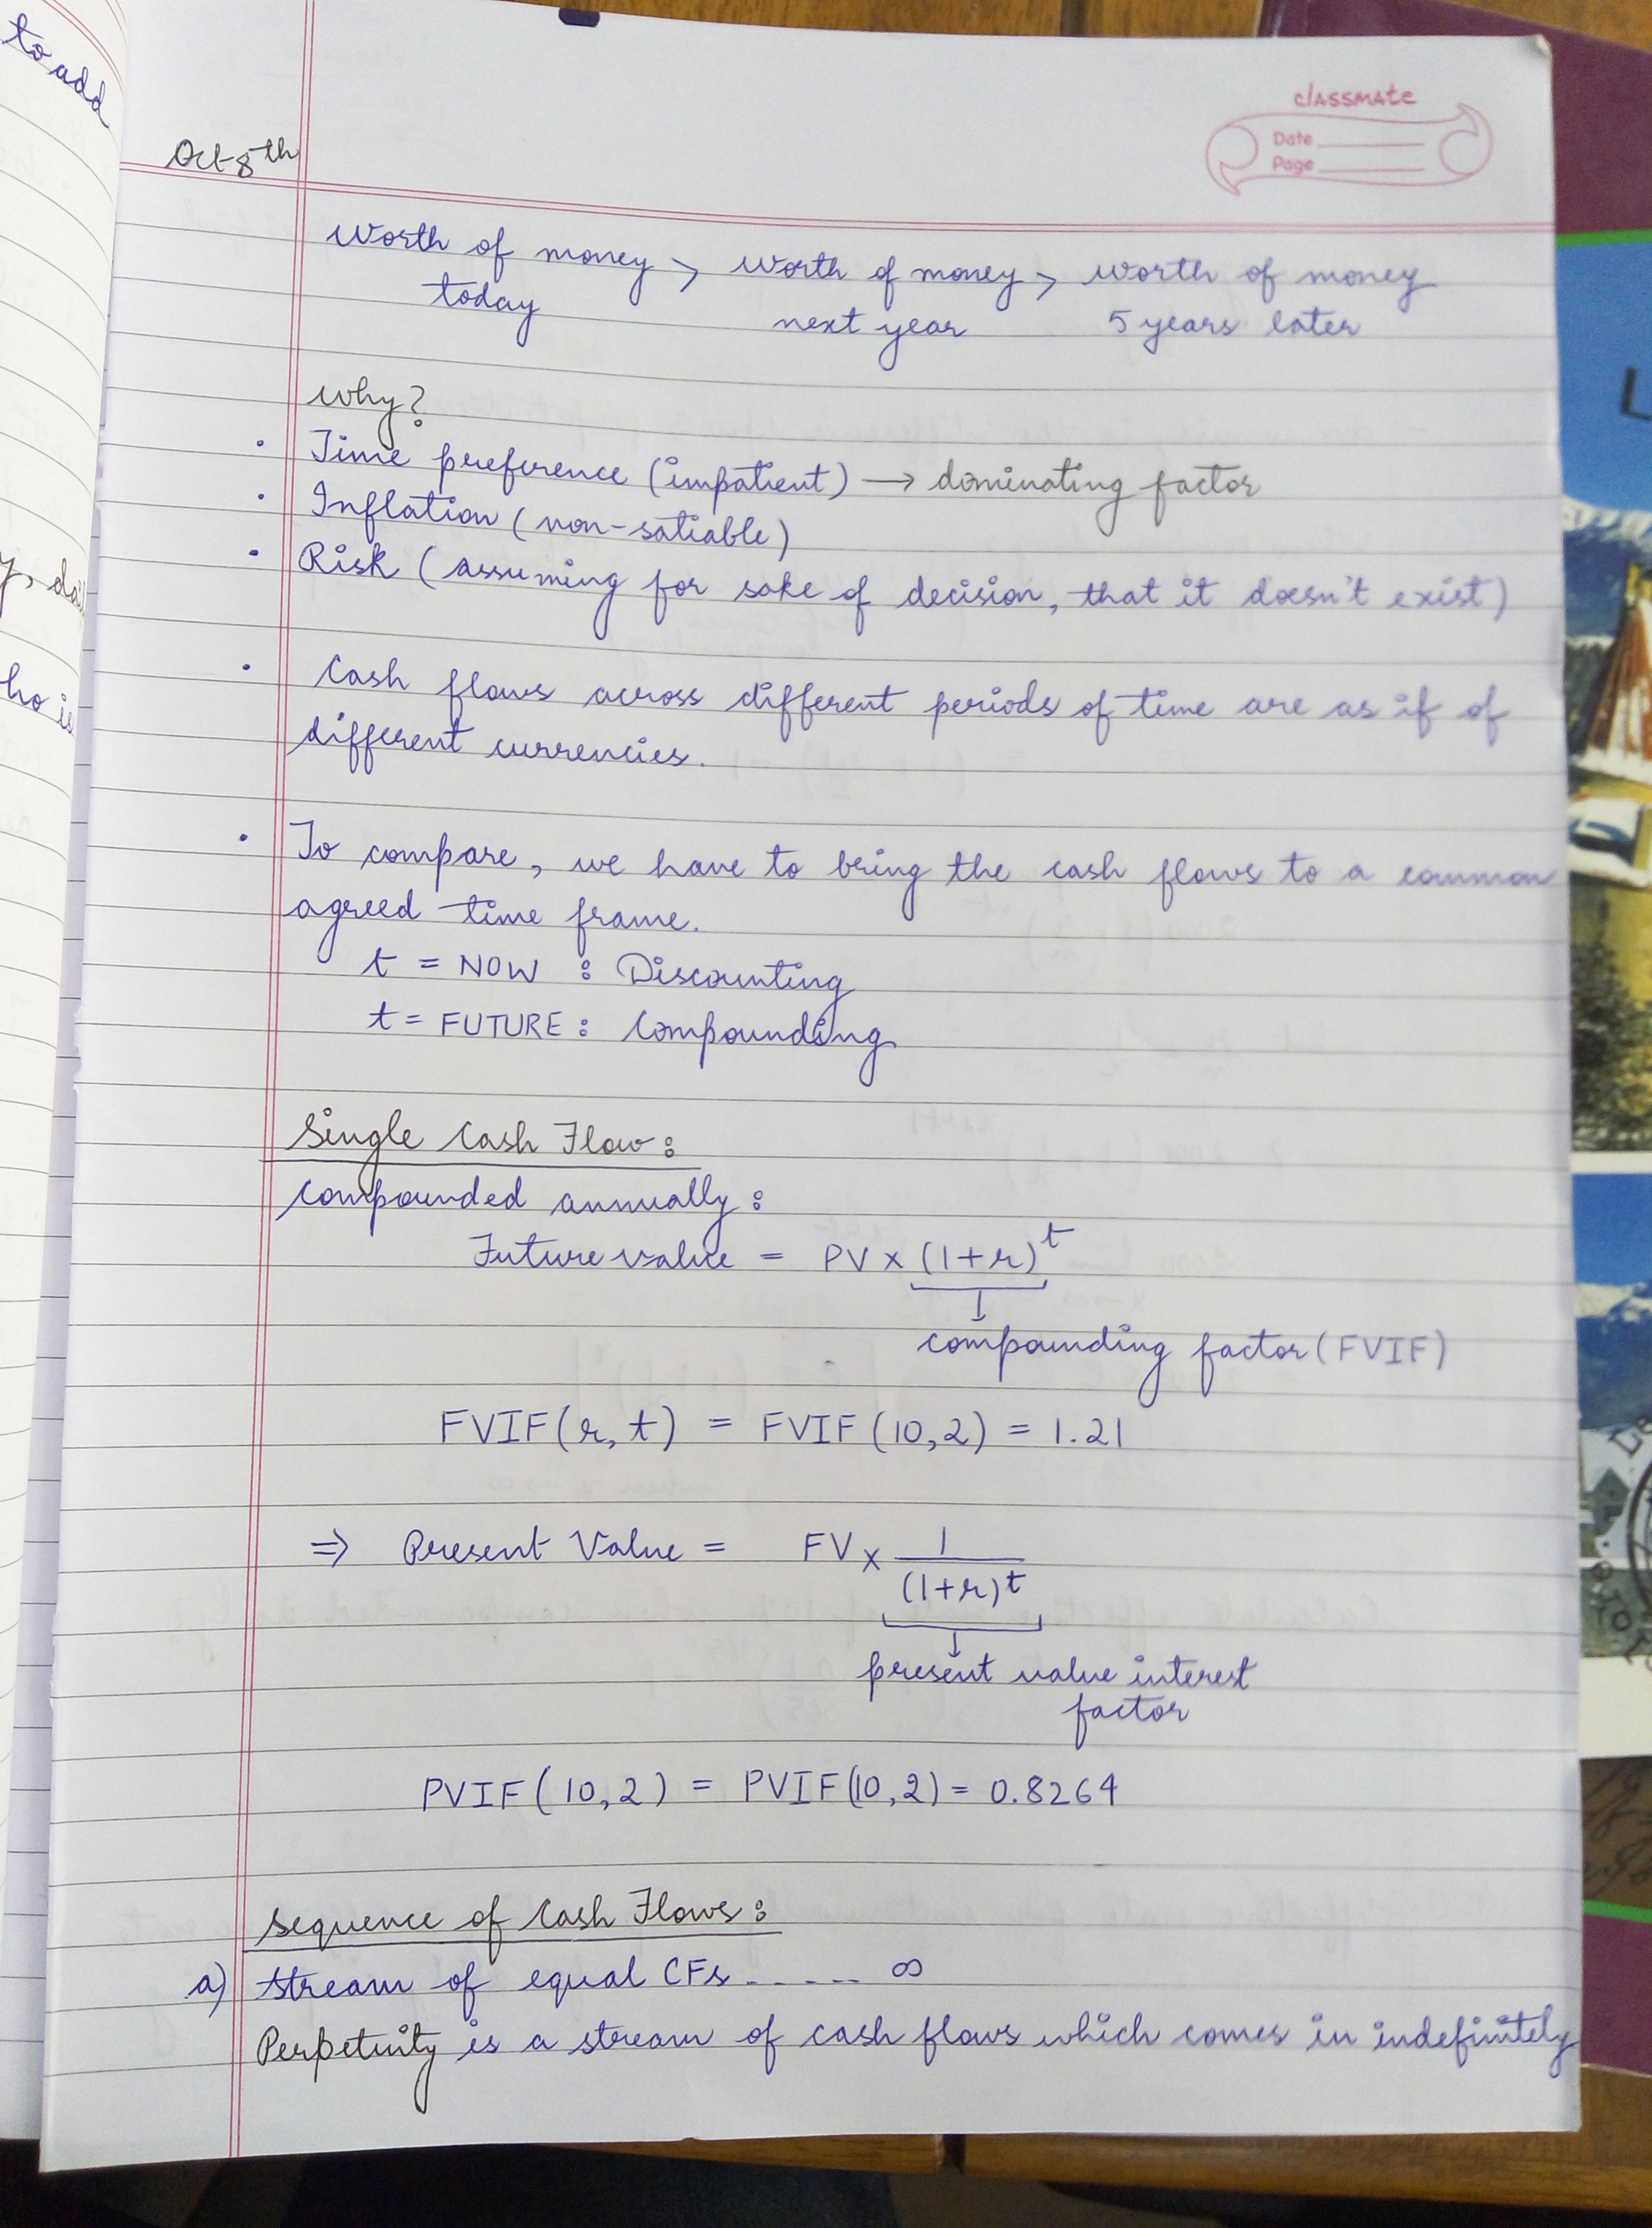 to add
classmate
Date
Page
Oct 8th
Worth of money > worth of money > worth of money
today next year 5 years later
Why?
· Time preference (impatient) → dominating factor
· Inflation (non-satiable)
· Risk (assuming for sake of decision, that it doesn't exist)
· Cash flows across different periods of time are as if of
different currencies.
· To compare, we have to bring the cash flows to a common
agreed time frame.
t = NOW : Discounting
t = FUTURE : Compounding
Single Cash Flow :
Compounded annually :
Future value = PV x (1+r)^t
compounding factor (FVIF)
FVIF (r, t) = FVIF (10,2) = 1.21
⇒ Present Value = FV x 1/(1+r)^t
present value interest
factor
PVIF (10,2) = PVIF (10,2) = 0.8264
Sequence of Cash Flows :
a) Stream of equal CFs ...... ∞
Perpetuity is a stream of cash flows which comes in indefinitely